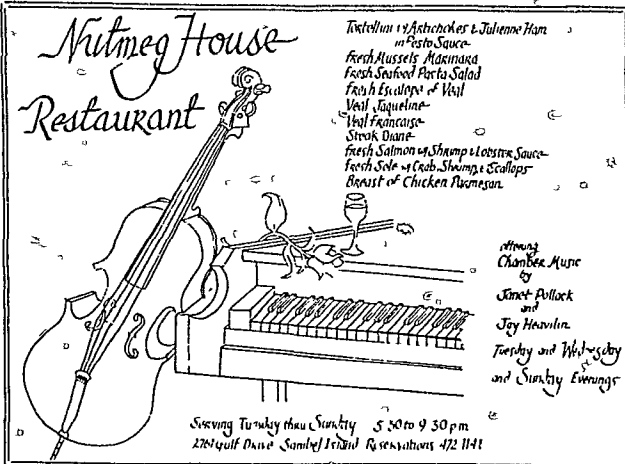 Nutmeg House
Restaurant
Tortellini w/ Artichokes & Julienne Ham
in Pesto Sauce
Fresh Mussels Marinara
Fresh Seafood Pasta Salad
Fresh Escalope of Veal
Veal Jaqueline
Veal Francaise
Steak Diane
Fresh Salmon w/ Shrimp & Lobster Sauce
Fresh Sole w/ Crab, Shrimp & Scallops
Breast of Chicken Parmesan
offering
Chamber Music
by
Janet Pollack
and
Jay Heavilin
Tuesday and Wednesday
and Sunday Evenings
Serving Tuesday thru Sunday 5 30 to 9 30 pm
Gulf Drive Sanibel Island Reservations 472 1141